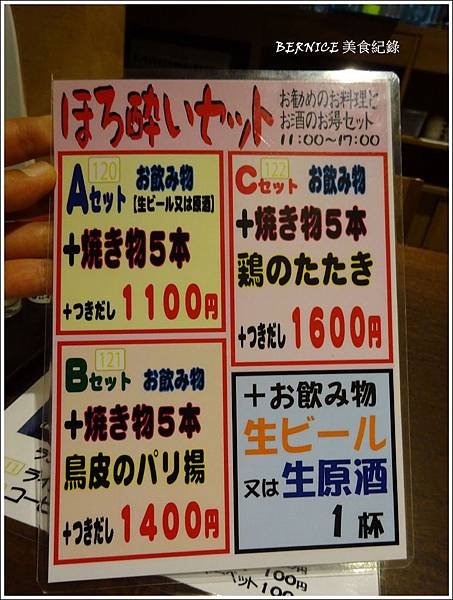 BERNICE 美食紀錄
ほろ酔いセット
お勧めのお料理と
お酒のお得セット
11:00～17:00
120
Aセット お飲み物
【生ビール又は原酒】
＋焼き物5本
＋つきだし 1100円
122
Cセット お飲み物
＋焼き物5本
鶏のたたき
＋つきだし 1600円
121
Bセット お飲み物
＋焼き物5本
鳥皮のパリ揚
＋つきだし 1400円
＋お飲み物
生ビール
又は生原酒
1杯
100円